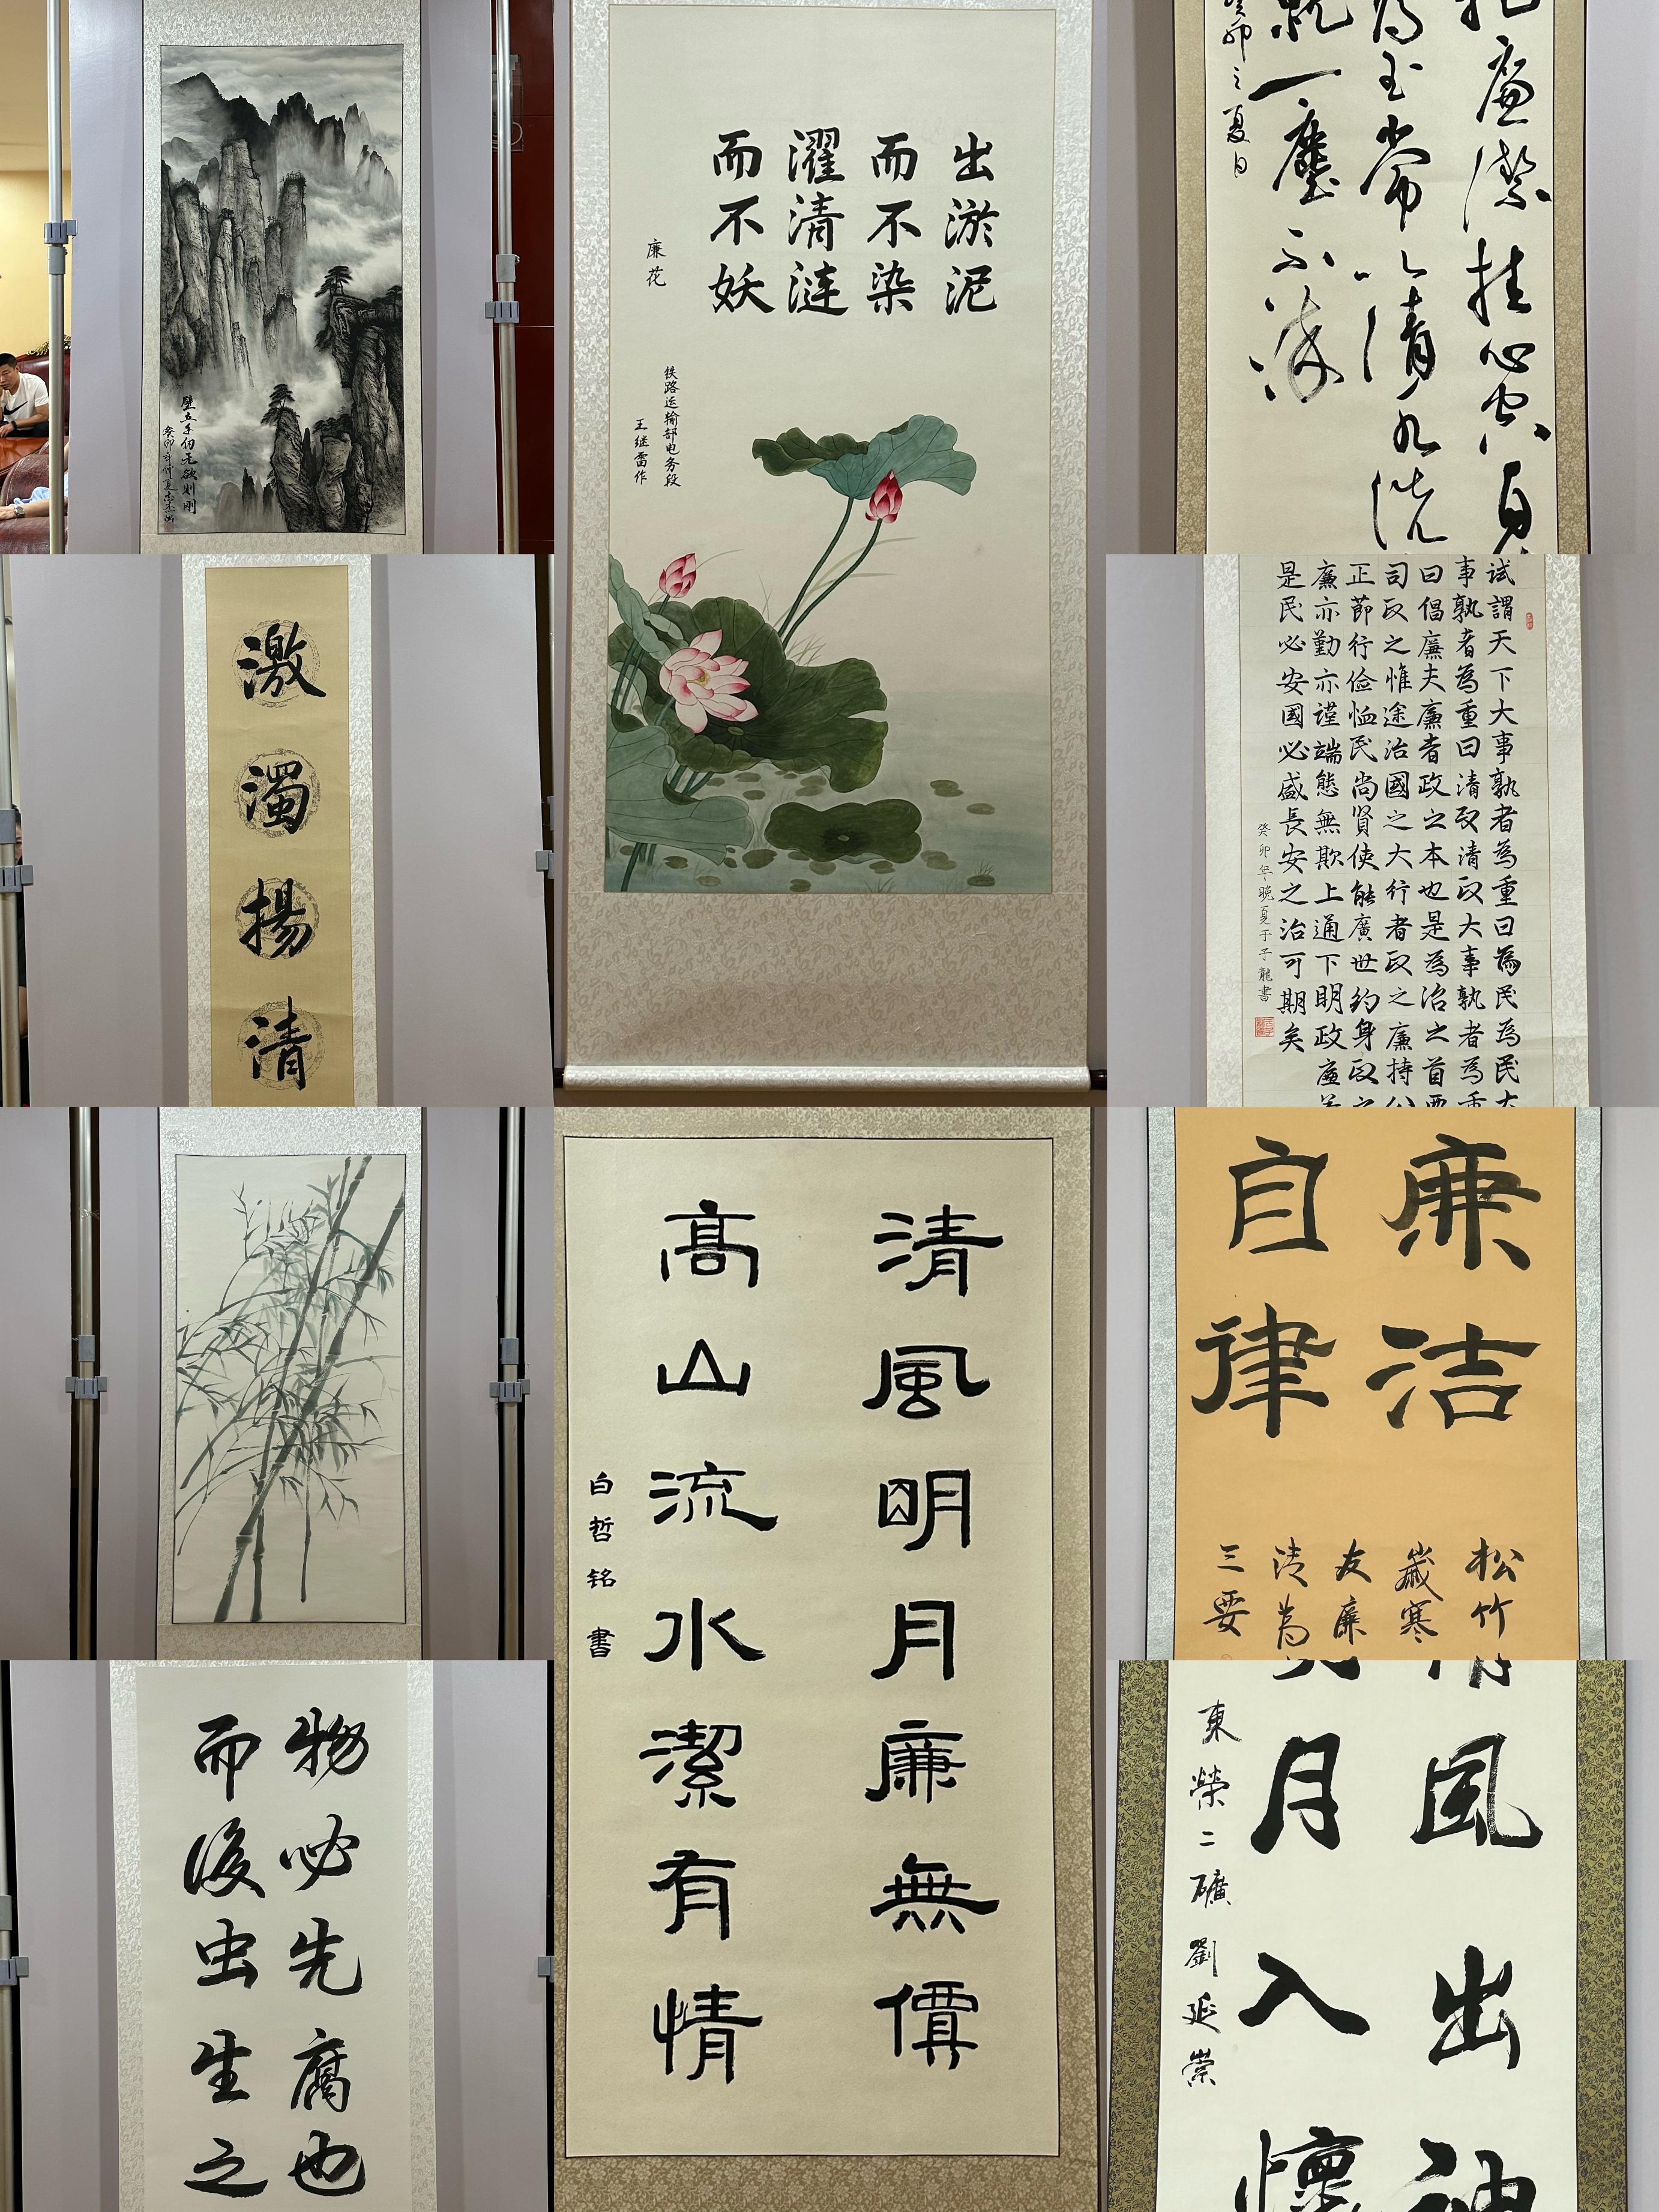 壁立千仞无欲则刚
出淤泥
而不染
濯清涟
而不妖
廉花
铁路运输部电务段
王继雷作
廉潔挂心中
一塵不染
癸卯之夏日
激濁揚清
试謂天下大事孰者為重曰為民為民大
事孰者為重曰清政清政大事孰者為重
曰倡廉夫廉者政之本也是為治之首要
司政之惟途治國之大行者政之廉持公
正節行俭恤民尚贤使能廣世約身政之
廉亦勤亦谨端態無欺上通下明政廉若
是民必安國必盛長安之治可期矣
癸卯年晚夏于子龍書
清風明月廉無價
高山流水潔有情
白哲铭書
廉洁
自律
松竹
歲寒
友廉
清為
三要
物必先腐也
而後虫生之
風出袖
月入懷
東榮二礦劉延崇